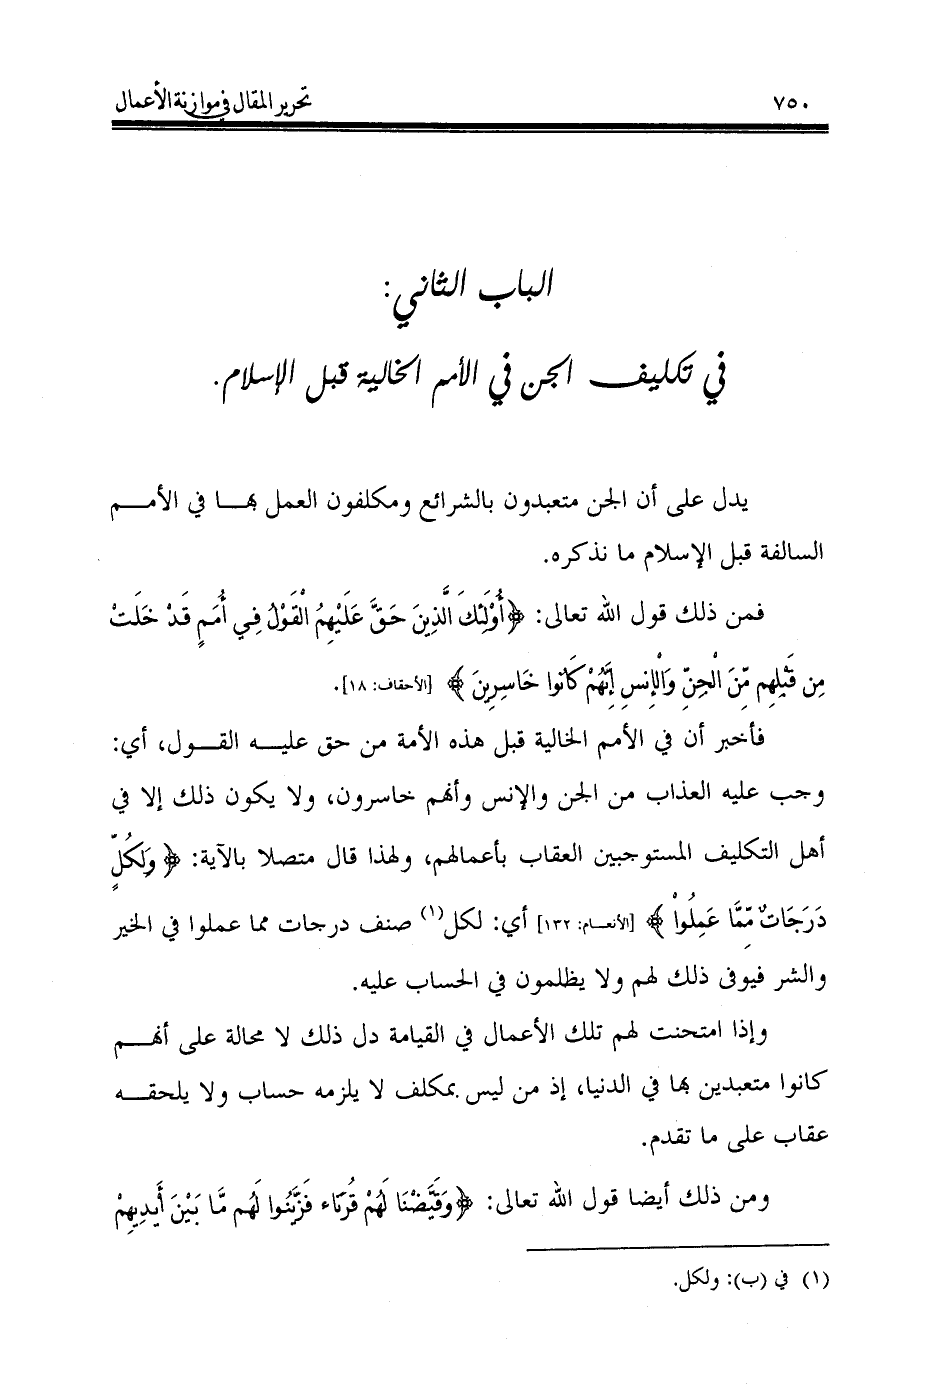 ٧٥٠ تحرير المقال في موازنة الأعمال
الباب الثاني:
في تكليف الجن في الأمم الخالية قبل الإسلام.
يدل على أن الجن متعبدون بالشرائع ومكلفون العمل بها في الأمم
السالفة قبل الإسلام ما نذكره.
فمن ذلك قول الله تعالى: ﴿أُوْلَئِكَ الَّذِينَ حَقَّ عَلَيْهِمُ الْقَوْلُ فِي أُمَمٍ قَدْ خَلَتْ
مِن قَبْلِهِم مِّنَ الْجِنِّ وَالْإِنسِ إِنَّهُمْ كَانُوا خَاسِرِينَ﴾ [الأحقاف: ١٨].
فأخبر أن في الأمم الخالية قبل هذه الأمة من حق عليه القول، أي:
وجب عليه العذاب من الجن والإنس وأنهم خاسرون، ولا يكون ذلك إلا في
أهل التكليف المستوجبين العقاب بأعمالهم، ولهذا قال متصلا بالآية: ﴿وَلِكُلٍّ
دَرَجَاتٌ مِّمَّا عَمِلُواْ﴾ [الأنعام: ١٣٢] أي: لكل(١) صنف درجات مما عملوا في الخير
والشر فيوفى ذلك لهم ولا يظلمون في الحساب عليه.
وإذا امتحنت لهم تلك الأعمال في القيامة دل ذلك لا محالة على أنهم
كانوا متعبدين بها في الدنيا، إذ من ليس بمكلف لا يلزمه حساب ولا يلحقه
عقاب على ما تقدم.
ومن ذلك أيضا قول الله تعالى: ﴿وَقَيَّضْنَا لَهُمْ قُرَنَاء فَزَيَّنُوا لَهُم مَّا بَيْنَ أَيْدِيهِمْ
(١) في (ب): ولكل.